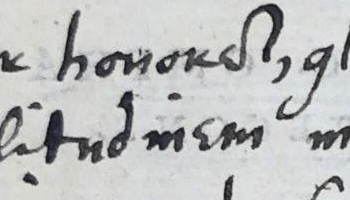 honores, gl
litudinem m